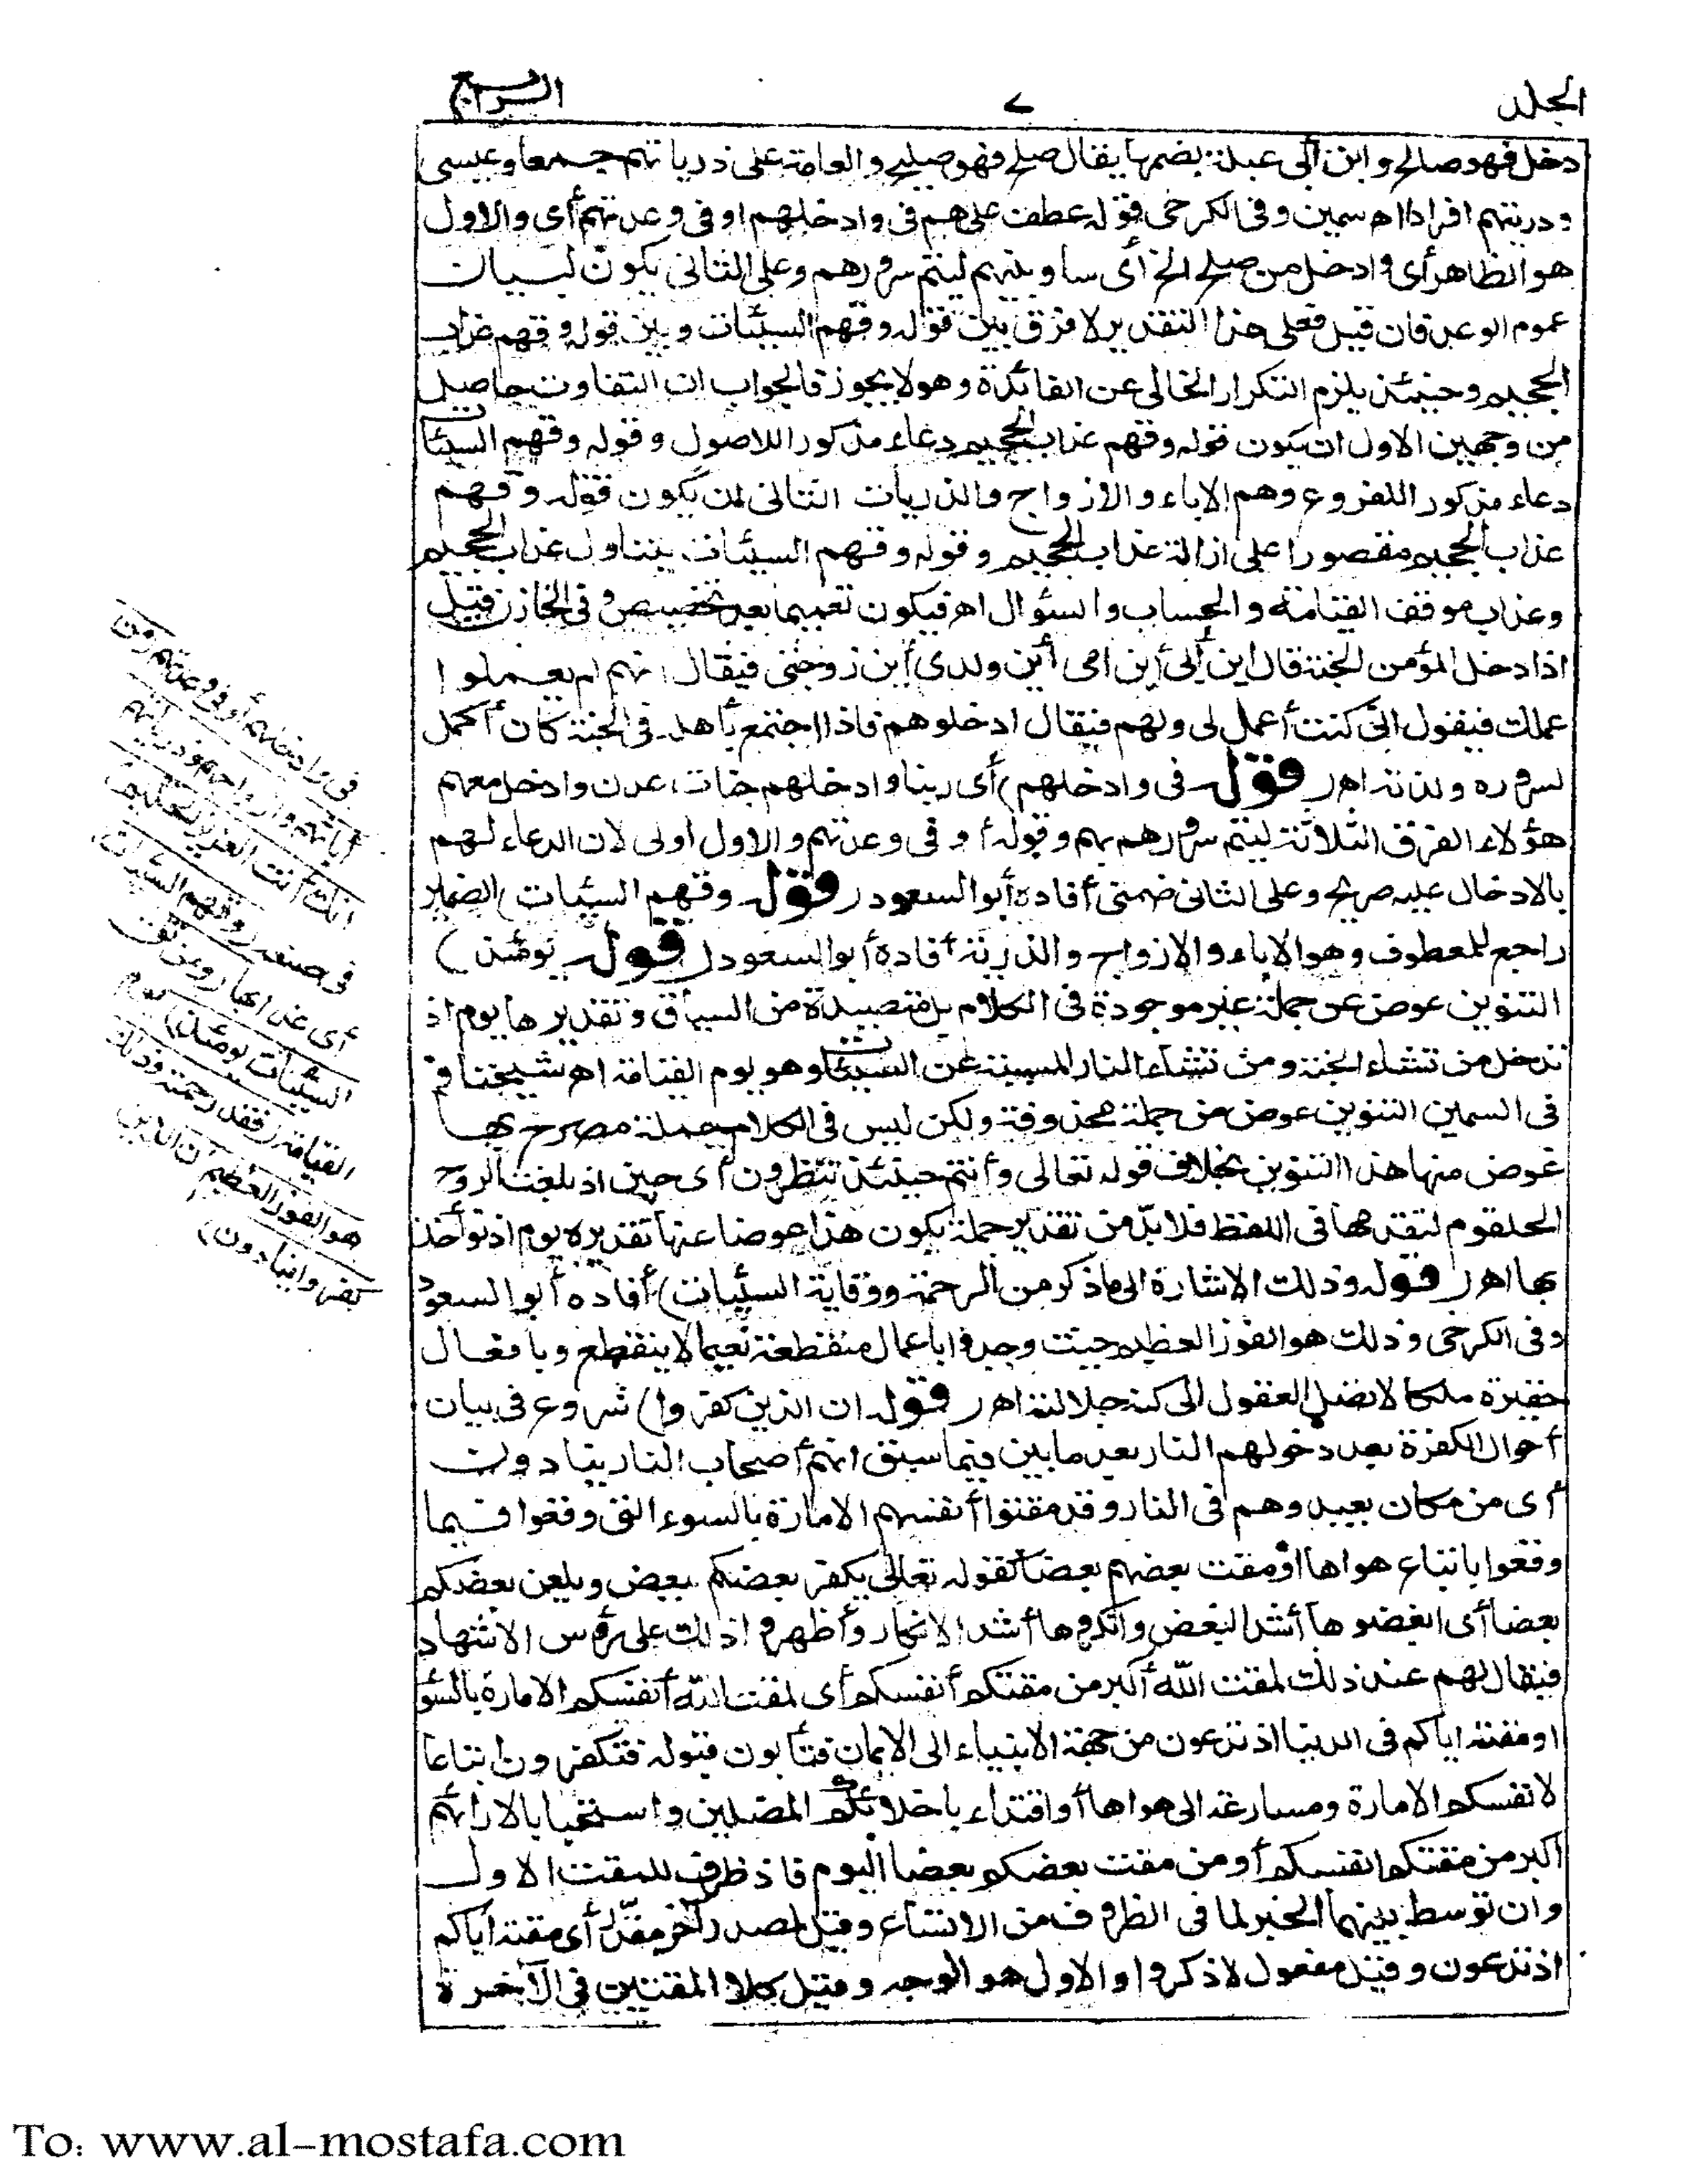 المجلد
٧
الرابع
دخل فهو صالح وابن أبى عبلة بضمها يقال صلح فهو صليح والعامة على ذرياتهم جمعا وعيسى
وذريتهم افرادا اه سمين وفى الكرخى قوله عطف على هم فى وادخلهم او فى وعدتهم أى والاول
هو الظاهر أى وادخل من صلح الخ أى ساو بينهم ليتم سرورهم وعلى الثانى يكون لبيان
عموم الوعد فان قيل فعلى هذا التقدير لا فرق بين قوله وقهم السيئات وبين قوله وقهم عذاب
الجحيم وحينئذ يلزم التكرار الخالى عن الفائدة وهو لا يجوز فالجواب ان التفاوت حاصل
من وجهين الاول ان يكون قوله وقهم عذاب الجحيم دعاء مذكور اللاصول وقوله وقهم السيئات
دعاء مذكور اللفروع وهم الاباء والازواج والذريات الثانى ان يكون قوله وقهم
عذاب الجحيم مقصورا على ازالة عذاب الجحيم وقوله وقهم السيئات يتناول عذاب الجحيم
وعذاب موقف القيامة والحساب والسؤال اه فيكون تعميما بعد تخصيص وفى الخازن قيل
اذا دخل المؤمن الجنة قال اين أبى أين امى أين ولدى أين زوجتى فيقال انهم لم يعملوا
عملك فيقول انى كنت أعمل لى ولهم فيقال ادخلوهم فاذا اجتمع بأهله فى الجنة كان أكمل
لسروره ولذته اه (قوله فى وادخلهم) أى ربنا وادخلهم جنات عدن وادخل معهم
هؤلاء الفرق الثلاثة ليتم سرورهم بهم وقوله أو فى وعدتهم والاول اولى لان الدعاء لهم
بالادخال عليه صريح وعلى الثانى ضمنى أفاده أبو السعود (قوله وقهم السيئات) الضمير
راجع للمعطوف وهو الاباء والازواج والذرية أفاده أبو السعود (قوله يومئذ)
التنوين عوض عن جملة غير موجودة فى الكلام بل متصيدة من السياق وتقديرها يوم اذ
تدخل من تشاء الجنة ومن تشاء النار المسببة عن السيئات وهو يوم القيامة اه شيخنا و
فى السمين التنوين عوض من جملة محذوفة ولكن ليس فى الكلام جملة مصرح بها
عوض منها هذا التنوين بخلاف قوله تعالى وأنتم حينئذ تنظرون أى حين اذ بلغت الروح
الحلقوم لتقدمها فى اللفظ فلا بد من تقدير جملة يكون هذا عوضا عنها تقديره يوم اذ تؤاخذ
بها اه (قوله وذلك الاشارة الى ما ذكر من الرحمة ووقاية السيئات) أفاده أبو السعود
وفى الكرخى وذلك هو الفوز العظيم حيث وجدوا باعمال منقطعة نعيما لا ينقطع وبأفعال
حقيرة ملكا لا تصل العقول الى كنه جلالته اه (قوله ان الذين كفروا) شروع فى بيان
أحوال الكفرة بعد دخولهم النار بعد ما بين فيما سبق انهم أصحاب النار ينادون
أى من مكان بعيد وهم فى النار وقد مقتوا أنفسهم الامارة بالسوء التى وقعوا فيما
وقعوا باتباع هواها او مقت بعضهم بعضا كقوله تعالى يكفر بعضكم ببعض ويلعن بعضكم
بعضا أى ابغضوها أشد البغض وانكروها أشد الانكار وأظهروا ذلك على رؤس الاشهاد
فيقال لهم عند ذلك لمقت الله أكبر من مقتكم أنفسكم أى لمقت الله أنفسكم الامارة بالسوء
او مقته اياكم فى الدنيا اذ تدعون من جهة الانبياء الى الايمان فتأبون قبوله فتكفرون اتباعا
لانفسكم الامارة ومسارعة الى هواها أو اقتداء باخلائكم المضلين واستحبابا لارائهم
أكبر من مقتكم انفسكم أو من مقت بعضكم بعضا اليوم فاذ ظرف للمقت الاول
وان توسط بينهما الخبر لما فى الظروف من الاتساع وقيل لمصدر آخر مقدر أى مقته اياكم
اذ تدعون وقيل مفعول لاذكروا والاول هو الوجه وقيل كلا المقتين فى الآخرة
فى وادخلهم أو فى وعدتهم (من
آبائهم وأزواجهم وذرياتهم
انك أنت العزيز الحكيم)
فى صنعه (وقهم السيئات)
أى عذابها (ومن تق
السيئات يومئذ) يوم
القيامة (فقد رحمته وذلك
هو الفوز العظيم ان الذين
كفروا ينادون)
To: www.al-mostafa.com